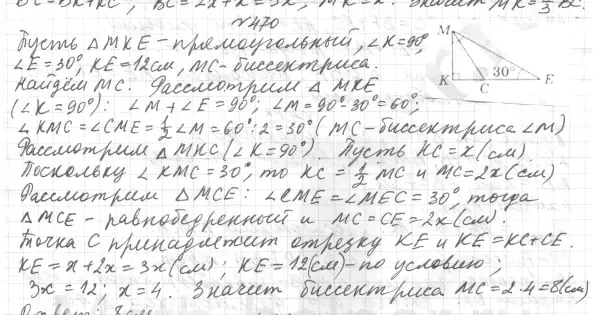 ВС=ВК+КС, ВС=2х+х=3х, МК=х. Значит МК=1/3 ВС.
№470
Пусть △MKE-прямоугольный, ∠K=90°,
∠E=30°, KE=12см, MC-биссектриса.
Найдём MC. Рассмотрим △ MKE
(∠K=90°): ∠M+∠E=90°; ∠M=90°-30°=60°;
∠KMC=∠CME=1/2∠M=60°:2=30° (MC-биссектриса ∠M)
Рассмотрим △MKC (∠K=90°). Пусть KC=x(см)
Поскольку ∠KMC=30°, то KC=1/2 MC и MC=2x(см)
Рассмотрим △MCE: ∠CME=∠MEC=30°, тогда
△MCE-равнобедренный и MC=CE=2x(см).
Точка C принадлежит отрезку KE и KE=KC+CE.
KE=x+2x=3x(см); KE=12(см)-по условию;
3x=12; x=4. Значит биссектриса MC=2·4=8(см)
Ответ: 8см
M
K
C
30°
E